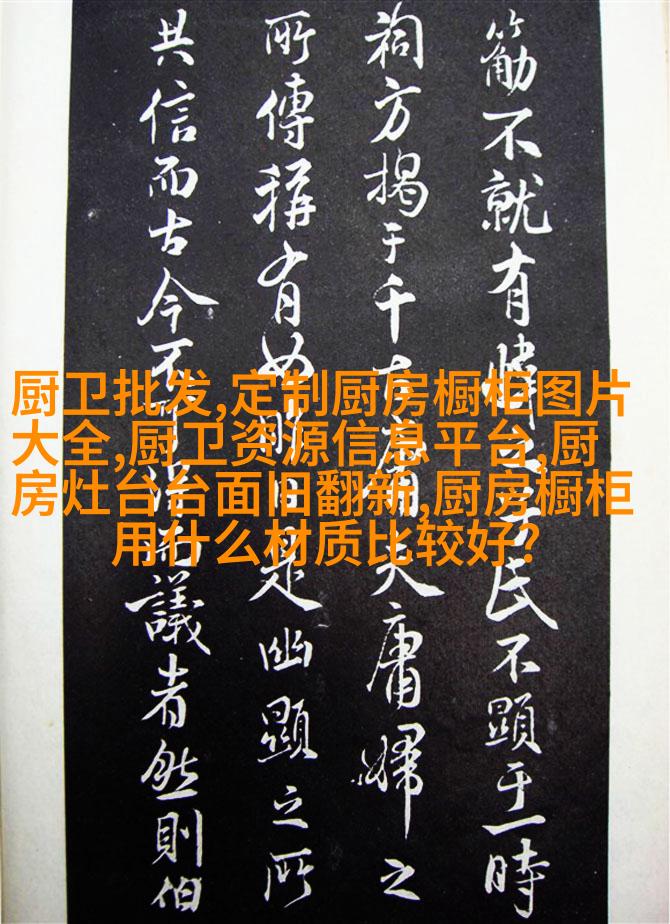 厨卫批发,定制厨房橱柜图片
大全,厨卫资源信息平台,厨
房灶台台面旧翻新,厨房橱柜
用什么材质比较好?
不就有之氏不顯于一時
祠方揭于千古庸夫庸婦之
所傳稱有如日是幽顯之所
共信而古今不可而議者然則伯